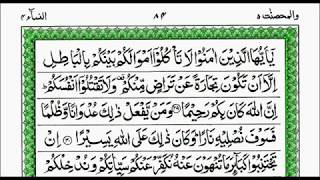 والمحصنت ۵ ۸۴ النسآء ۴
یٰۤاَیُّهَا الَّذِیْنَ اٰمَنُوْا لَا تَاْكُلُوْۤا اَمْوَالَكُمْ بَیْنَكُمْ بِالْبَاطِلِ
اِلَّاۤ اَنْ تَكُوْنَ تِجَارَةً عَنْ تَرَاضٍ مِّنْكُمْ وَلَا تَقْتُلُوْۤا اَنْفُسَكُمْ
اِنَّ اللّٰهَ كَانَ بِكُمْ رَحِیْمًا ﴿۲۹﴾ وَمَنْ یَّفْعَلْ ذٰلِكَ عُدْوَانًا وَّظُلْمًا
فَسَوْفَ نُصْلِیْهِ نَارًا وَكَانَ ذٰلِكَ عَلَی اللّٰهِ یَسِیْرًا ﴿۳۰﴾ اِنْ
تَجْتَنِبُوْا كَبَآئِرَ مَا تُنْهَوْنَ عَنْهُ نُكَفِّرْ عَنْكُمْ سَیِّاٰتِكُمْ وَنُدْخِلْكُمْ